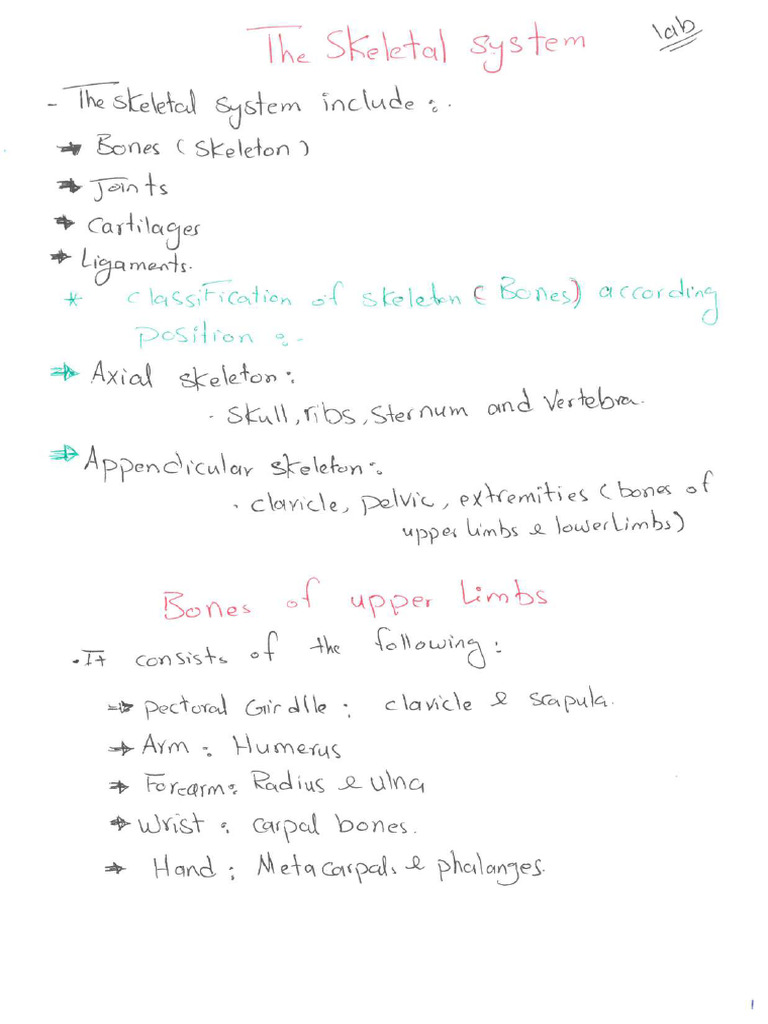 The Skeletal system
lab
- The skeletal system include :.
→ Bones (skeleton)
→ Joints
→ Cartilages
→ Ligaments.
* Classification of skeleton (Bones) according
position :-
→ Axial skeleton:
. skull, ribs, sternum and vertebra.
→ Appendicular skeleton:
. clavicle, pelvic, extremities (bones of
upper limbs & lower limbs)
Bones of upper Limbs
. It consists of the following :
→ Pectoral Girdlle : clavicle & scapula.
→ Arm : Humerus
→ Forearm: Radius & ulna
→ Wrist : carpal bones.
→ Hand : Metacarpals & phalanges.
1